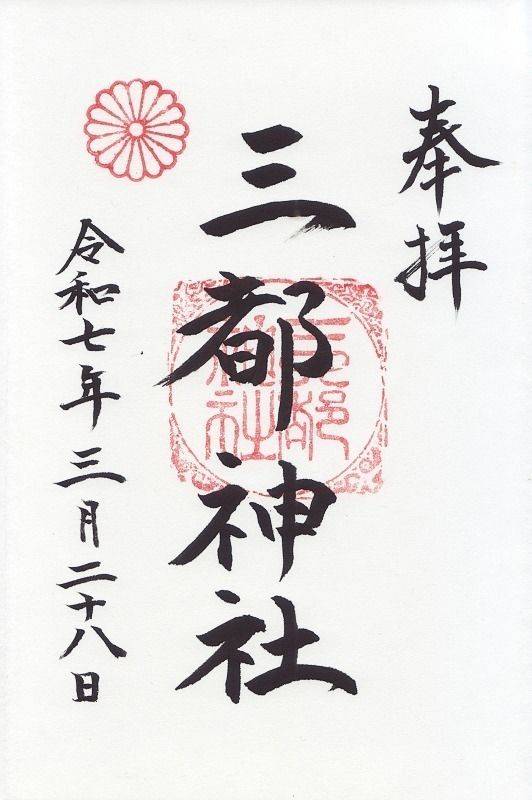 奉拝
三都神社
三都神社
令和七年三月二十八日